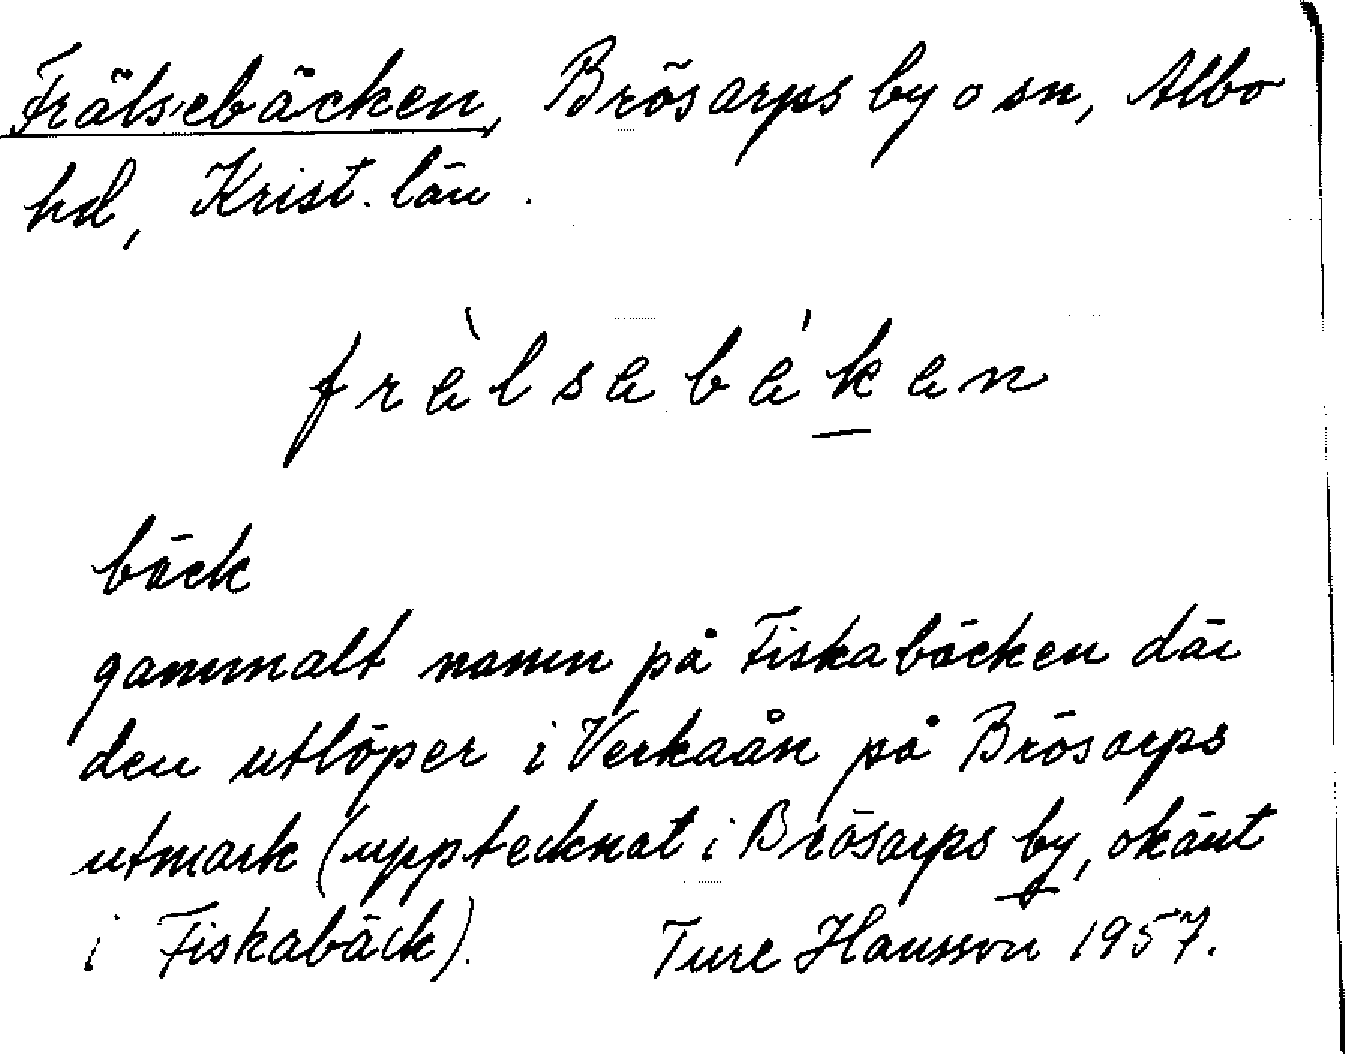 Frälsebäcken, Brösarps by o sn, Albo
hd, Krist. län.
frèlsebéken
bäck
gammalt namn på Fiskabäcken där
den utlöper i Verkaån på Brösarps
utmark (upptecknat i Brösarps by, okänt
i Fiskabäck). Ture Hansson 1957.